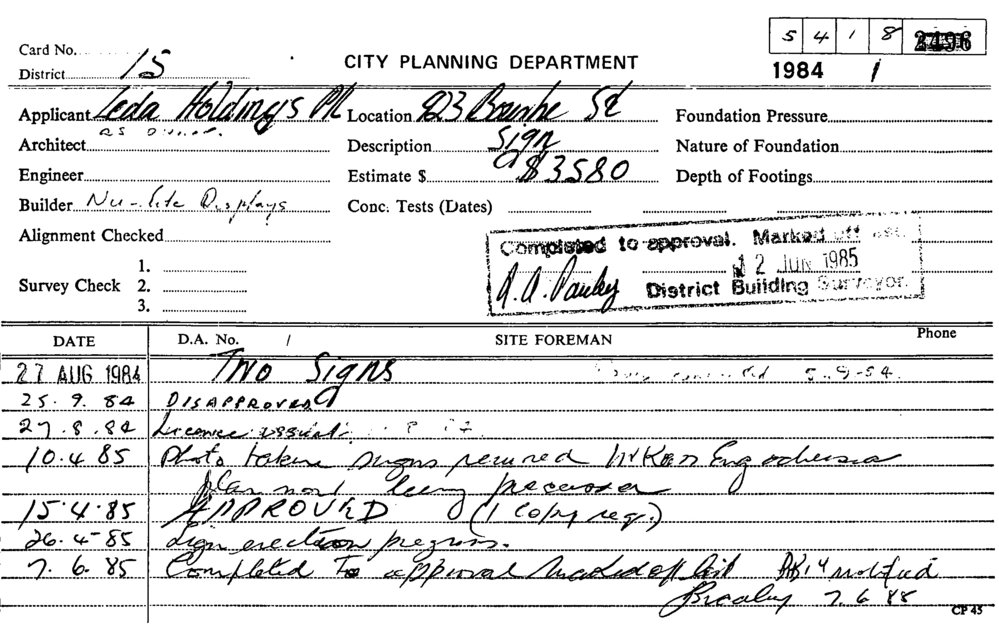 5 4 1 8 2496
Card No.
District 15
CITY PLANNING DEPARTMENT
1984 /
Applicant Leda Holdings P/L Location 923 Bourke St Foundation Pressure
as owner.
Architect Description Sign Nature of Foundation
Engineer Estimate $ $3580 Depth of Footings
Builder Nu-lite Displays Conc. Tests (Dates)
Alignment Checked
Completed to approval. Marked off list.
12 JUN 1985
District Building Surveyor.
Survey Check 1.
2.
3.
DATE D.A. No. / SITE FOREMAN Phone
27 AUG 1984 TWO SIGNS
25. 9. 84 DISAPPROVED
27. 8. 84 Licence issued
10. 4 85 Photo taken signs Eng
plan now being
15. 4. 85 APPROVED (1 copy req.)
26. 4- 85 Sign erection progress.
7. 6. 85 Completed To approval marked off list notified
7. 6 85
CP 45